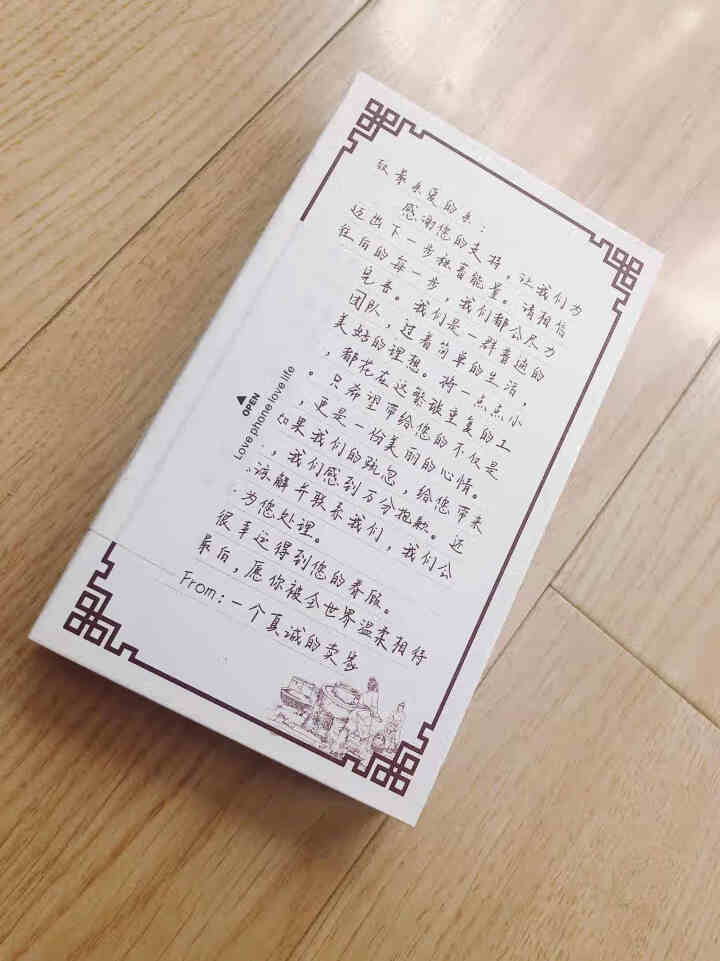 致最亲爱的亲：
感谢您的支持，让我们为
迈出下一步积蓄能量。请相信
往后的每一步，我们都会尽力
完善。我们是一群普通的
团队，过着简单的生活，
美好的理想。将一点点小
，都花在这繁琐重复的工
。只希望带给您的不仅是
，更是一份美丽的心情。
如果我们的疏忽，给您带来
，我们感到万分抱歉。还
谅解并联系我们，我们会
为您处理。
很幸运得到您的眷顾。
最后，愿你被全世界温柔相待
From：一个真诚的卖家
▲ OPEN
Love phone love life